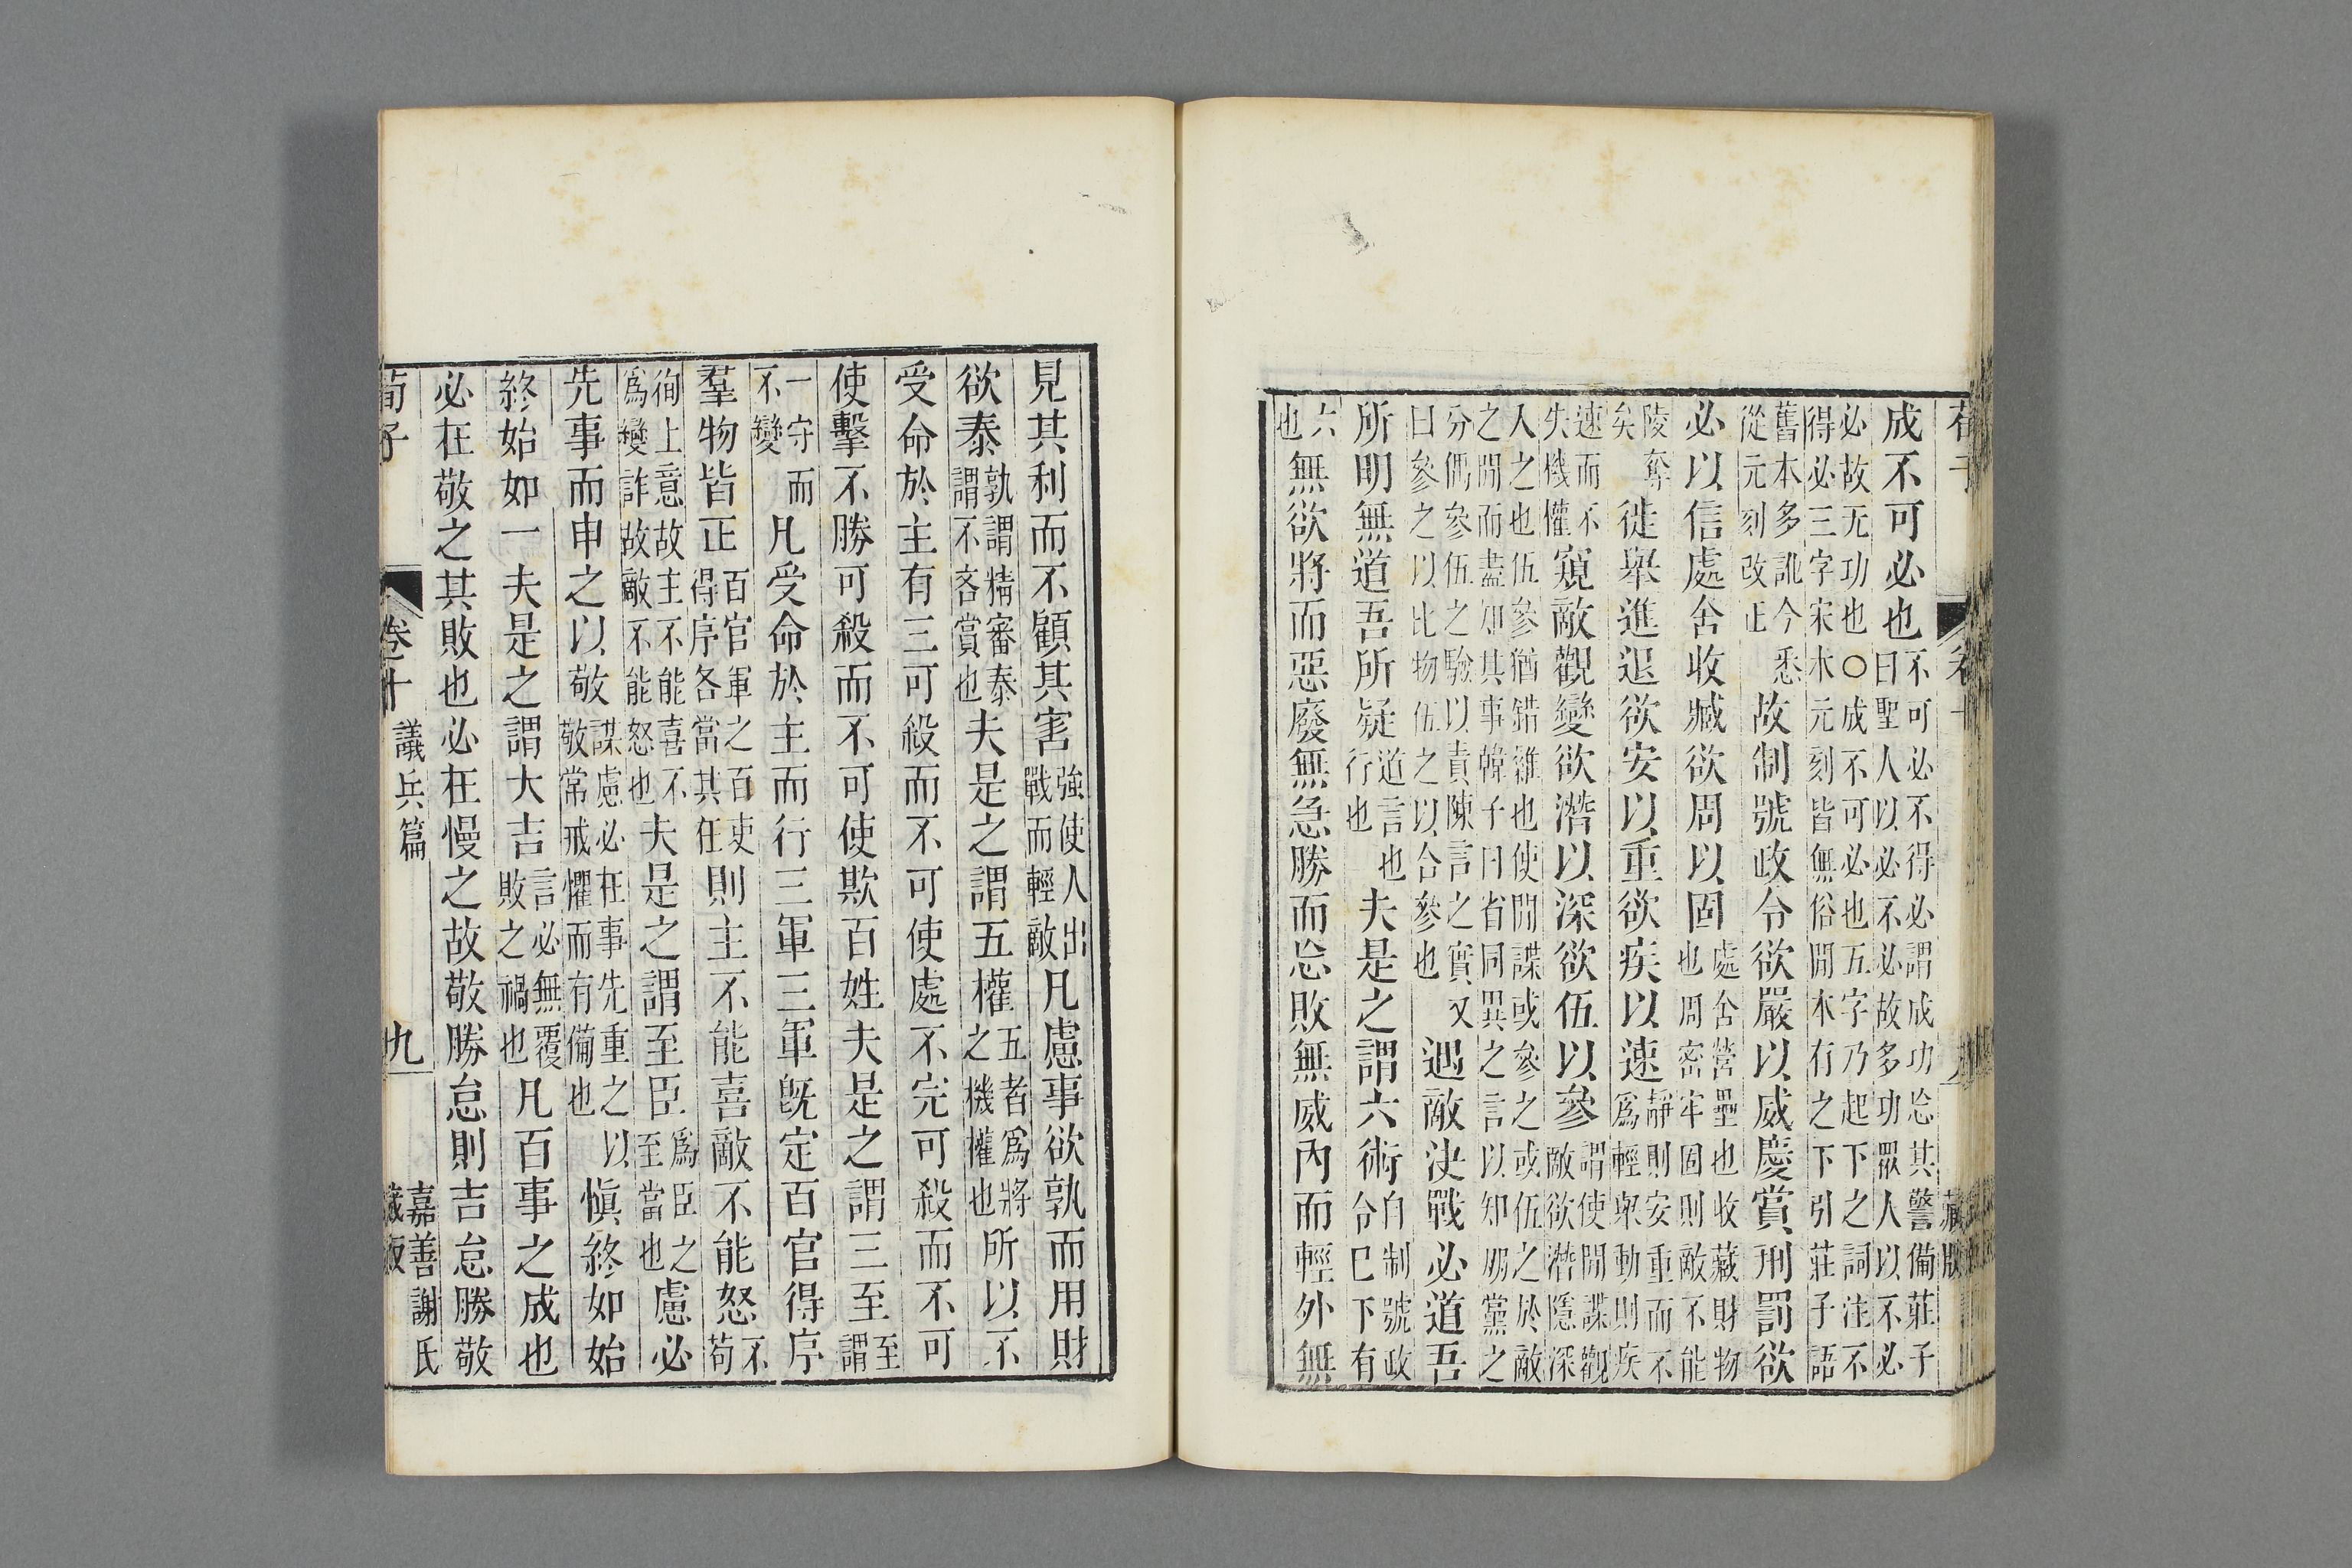 荀子　卷十　藏版
成不可必也不可必不得必謂成功忘其警備莊子曰聖人以必不必故多功眾人以不必
必故无功也○成不可必也五字乃起下之詞注不得必三字宋本元刻皆無俗間本有之下引莊子語
舊本多訛今悉從元刻改正故制號政令欲嚴以威慶賞刑罰欲
必以信處舍收臧欲周以固處舍營壘也收藏財物也周密牢固則敵不能
陵奪矣徙舉進退欲安以重欲疾以速靜則安重而不爲輕舉動則疾
速而不失機懽窺敵觀變欲潛以深欲伍以參謂使間諜觀敵欲潛隱深
人之也伍參猶錯雜也使間諜或參之或伍之於敵之間而盡知其事韓子曰省同異之言以知朋黨之
分偶參伍之驗以責陳言之實又曰參之以比物伍之以合參也遇敵決戰必道吾
所明無道吾所疑道言也行也夫是之謂六術自制號政令已下有
六也無欲將而惡廢無急勝而忘敗無威內而輕外無
見其利而不顧其害強使人出戰而輕敵凡慮事欲孰而用財
欲泰孰謂精審泰謂不吝賞也夫是之謂五權五者爲將之機權也所以不
受命於主有三可殺而不可使處不完可殺而不可
使擊不勝可殺而不可使欺百姓夫是之謂三至至謂
一守而不變凡受命於主而行三軍三軍旣定百官得序
羣物皆正百官軍之百吏得序各當其任則主不能喜敵不能怒不苟
徇上意故主不能喜不爲變詐故敵不能怒也夫是之謂至臣爲臣之至當也慮必
先事而申之以敬謀慮必在事先重之以敬常戒懼而有備也愼終如始
終始如一夫是之謂大吉言必無覆敗之禍也凡百事之成也
必在敬之其敗也必在慢之故敬勝怠則吉怠勝敬
荀子　卷十　議兵篇　九　嘉善謝氏藏版